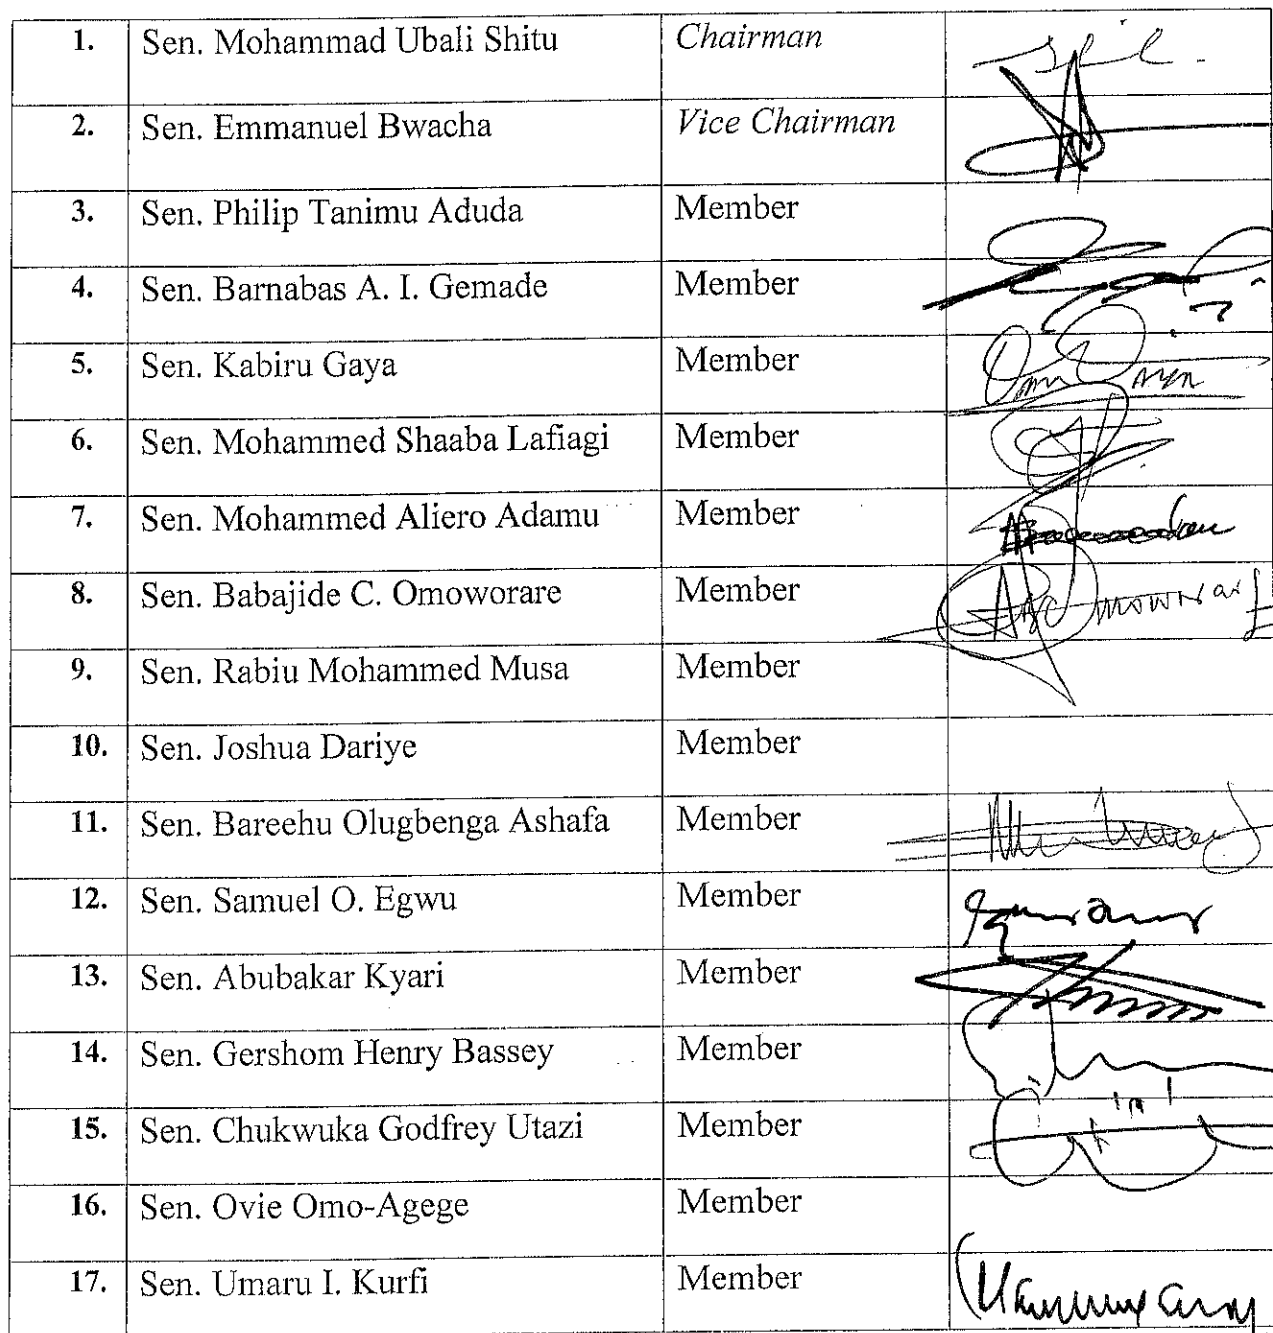 1. Sen. Mohammad Ubali Shitu Chairman
2. Sen. Emmanuel Bwacha Vice Chairman
3. Sen. Philip Tanimu Aduda Member
4. Sen. Barnabas A. I. Gemade Member
5. Sen. Kabiru Gaya Member
6. Sen. Mohammed Shaaba Lafiagi Member
7. Sen. Mohammed Aliero Adamu Member
8. Sen. Babajide C. Omoworare Member
9. Sen. Rabiu Mohammed Musa Member
10. Sen. Joshua Dariye Member
11. Sen. Bareehu Olugbenga Ashafa Member
12. Sen. Samuel O. Egwu Member
13. Sen. Abubakar Kyari Member
14. Sen. Gershom Henry Bassey Member
15. Sen. Chukwuka Godfrey Utazi Member
16. Sen. Ovie Omo-Agege Member
17. Sen. Umaru I. Kurfi Member